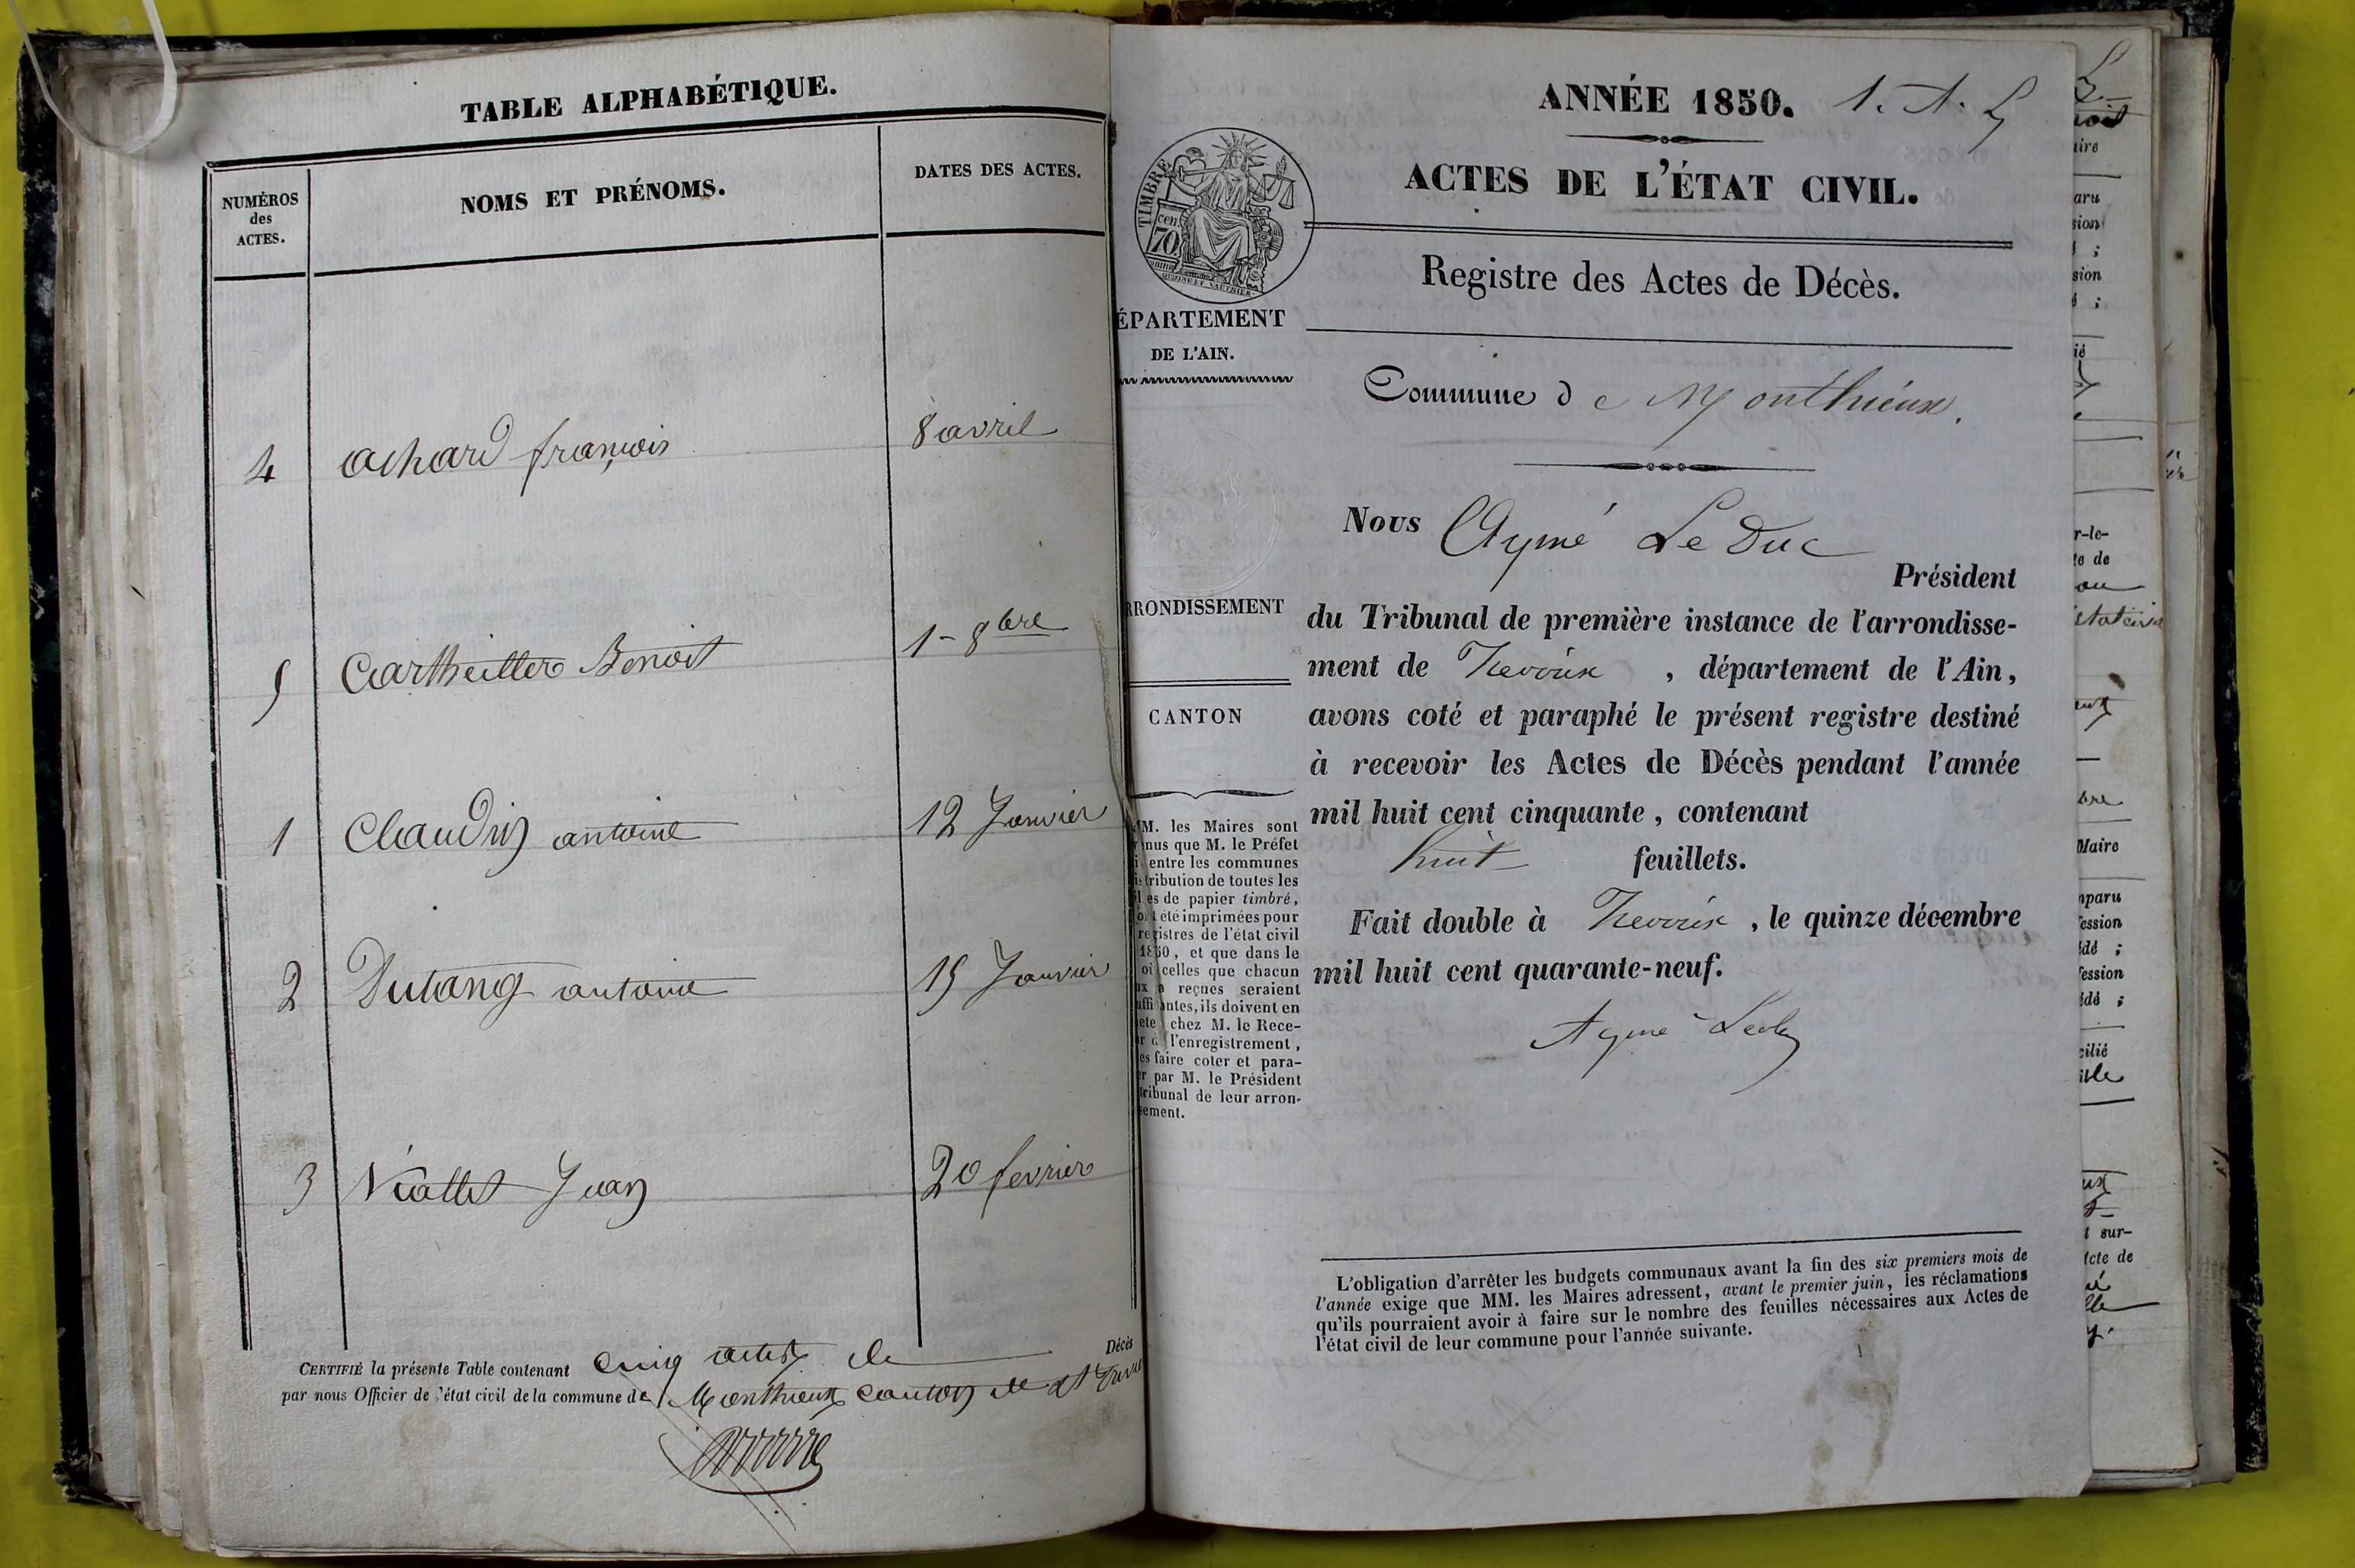 TABLE ALPHABÉTIQUE.
NUMÉROS
des
ACTES.
NOMS ET PRÉNOMS.
DATES DES ACTES.
4 achard françois 8 avril
5 Cartheiller Benoit 1 - 8bre
1 Chaudin antoine 12 Janvier
2 Dutang antoine 15 Janvier
3 Viallet Jean 20 fevrier
CERTIFIÉ la présente Table contenant Cinq actes de Décès
par nous Officier de l'état civil de la commune de Monthieux Canton de St
ANNÉE 1850. 1. A. L
ACTES DE L'ÉTAT CIVIL.
TIMBRE
70 cen
Registre des Actes de Décès.
ÉPARTEMENT
DE L'AIN.
RRONDISSEMENT
CANTON
M. les Maires sont
nus que M. le Préfet
entre les communes
tribution de toutes les
es de papier timbré,
été imprimées pour
registres de l'état civil
1850, et que dans le
où celles que chacun
reçues seraient
antes, ils doivent en
chez M. le Rece-
l'enregistrement,
es faire coter et para-
er par M. le Président
tribunal de leur arron-
sement.
Commune de Monthieux.
Nous Aymé Le Duc
Président
du Tribunal de première instance de l'arrondisse-
ment de Trevoux , département de l'Ain,
avons coté et paraphé le présent registre destiné
à recevoir les Actes de Décès pendant l'année
mil huit cent cinquante, contenant
huit feuillets.
Fait double à Trevoux , le quinze décembre
mil huit cent quarante-neuf.
Aymé Leduc
L'obligation d'arrêter les budgets communaux avant la fin des six premiers mois de
l'année exige que MM. les Maires adressent, avant le premier juin, les réclamations
qu'ils pourraient avoir à faire sur le nombre des feuilles nécessaires aux Actes de
l'état civil de leur commune pour l'année suivante.